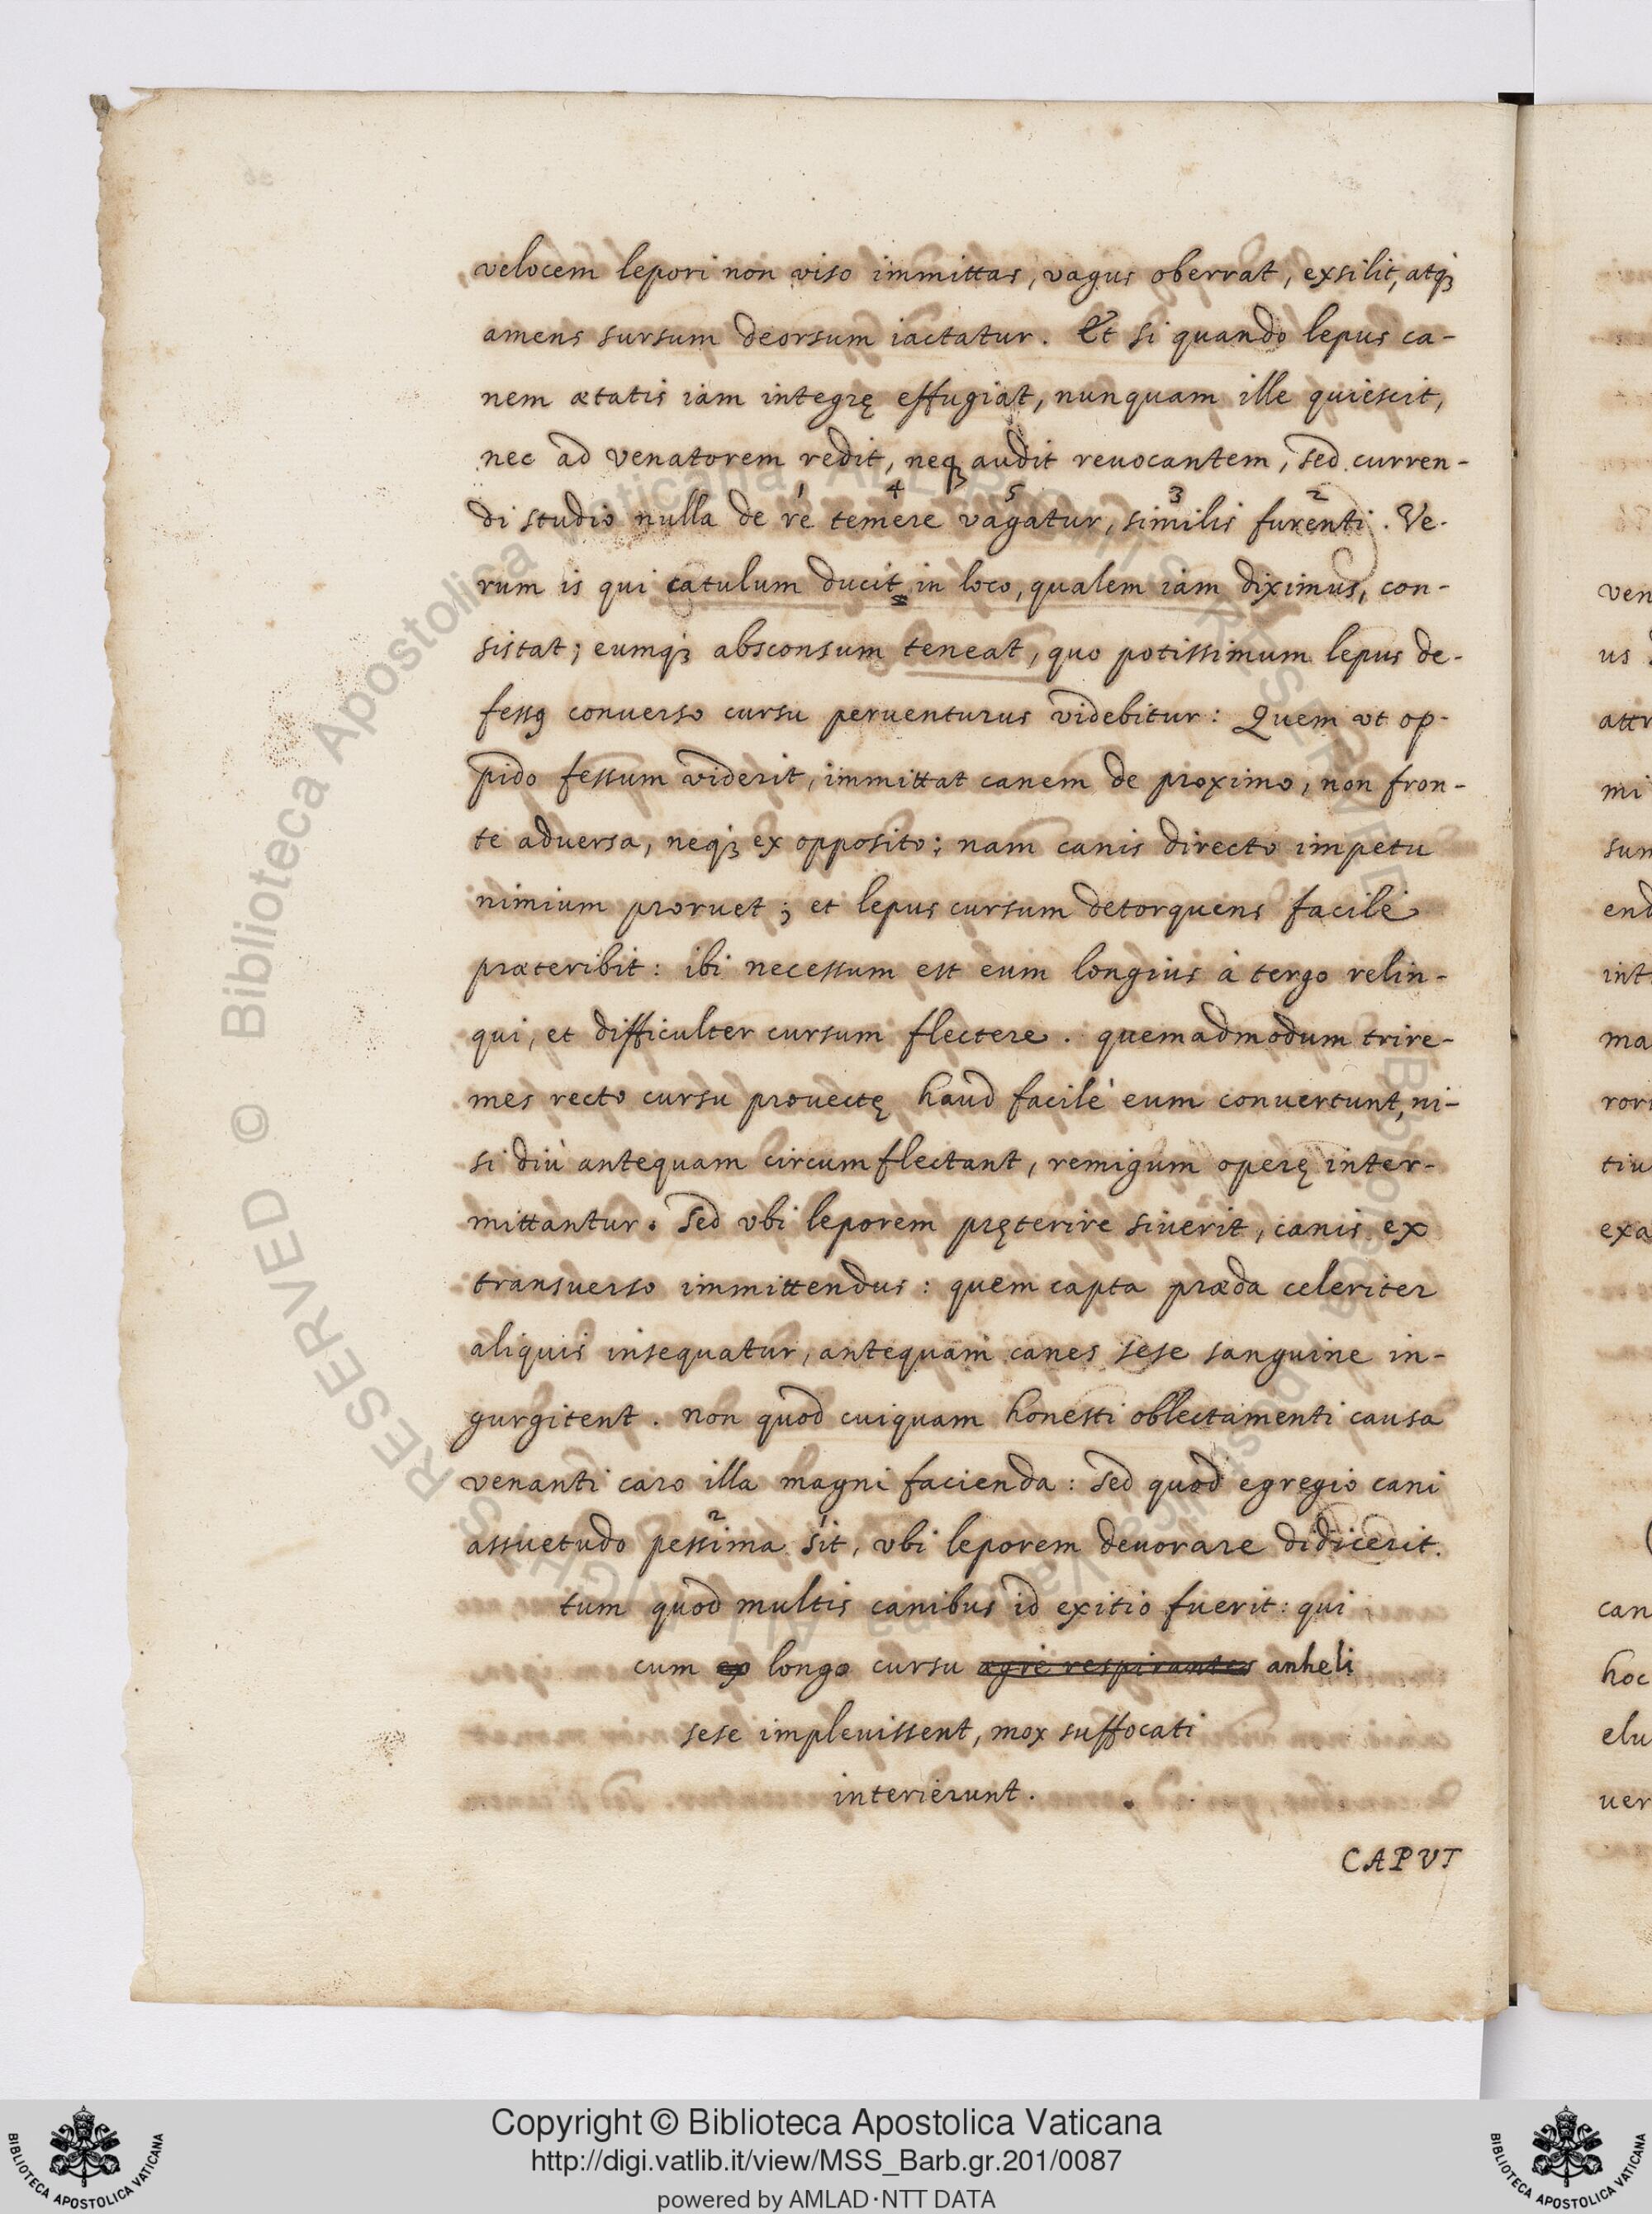 velocem lepori non viso immittas, vagus oberrat, exsilit, atq;
amens sursum deorsum iactatur. Et si quando lepus ca-
nem ætatis iam integrę effugiat, nunquam ille quiescit,
nec ad venatorem redit, neq; audit reuocantem, sed curren-
1 4 5 3 2
di studio nulla de re temere vagatur, similis furenti. Ve-
rum is qui catulum ducit in loco, qualem iam diximus, con-
sistat; eumq; absconsum teneat, quo potissimum lepus de-
fessꝰ conuerso cursu peruenturus videbitur: Quem vt op-
pido fessum viderit, immittat canem de proximo, non fron-
te aduersa, neq; ex opposito; nam canis directo impetu
nimium proruet; et lepus cursum detorquens facilè
præteribit: ibi necessum est eum longius à tergo relin-
qui, et difficulter cursum flectere. quemadmodum trire-
mes recto cursu prouectę haud facilè eum conuertunt, ni-
si diù antequam circumflectant, remigum operę inter-
mittantur. Sed vbi leporem pręterire siuerit, canis ex
transuerso immittendus: quem capta præda celeriter
aliquis insequatur, antequam canes sese sanguine in-
gurgitent. non quod cuiquam honesti oblectamenti causa
venanti caro illa magni facienda: sed quod egregio cani
2 1
assuetudo pessima sit, vbi leporem deuorare didicerit.
tum quod multis canibus id exitio fuerit: qui
cum ex longo cursu ægrè respirantes anheli
sese impleuissent, mox suffocati
interierunt.
CAPVT
ven
us
attr
mi
sun
end
int
ma
rori
tiu
exa
can
hoc
elu
uer
© Biblioteca Apostolica Vaticana, ALL RIGHTS RESERVED
Copyright © Biblioteca Apostolica Vaticana
http://digi.vatlib.it/view/MSS_Barb.gr.201/0087
powered by AMLAD·NTT DATA
BIBLIOTECA APOSTOLICA VATICANA
BIBLIOTECA APOSTOLICA VATICANA